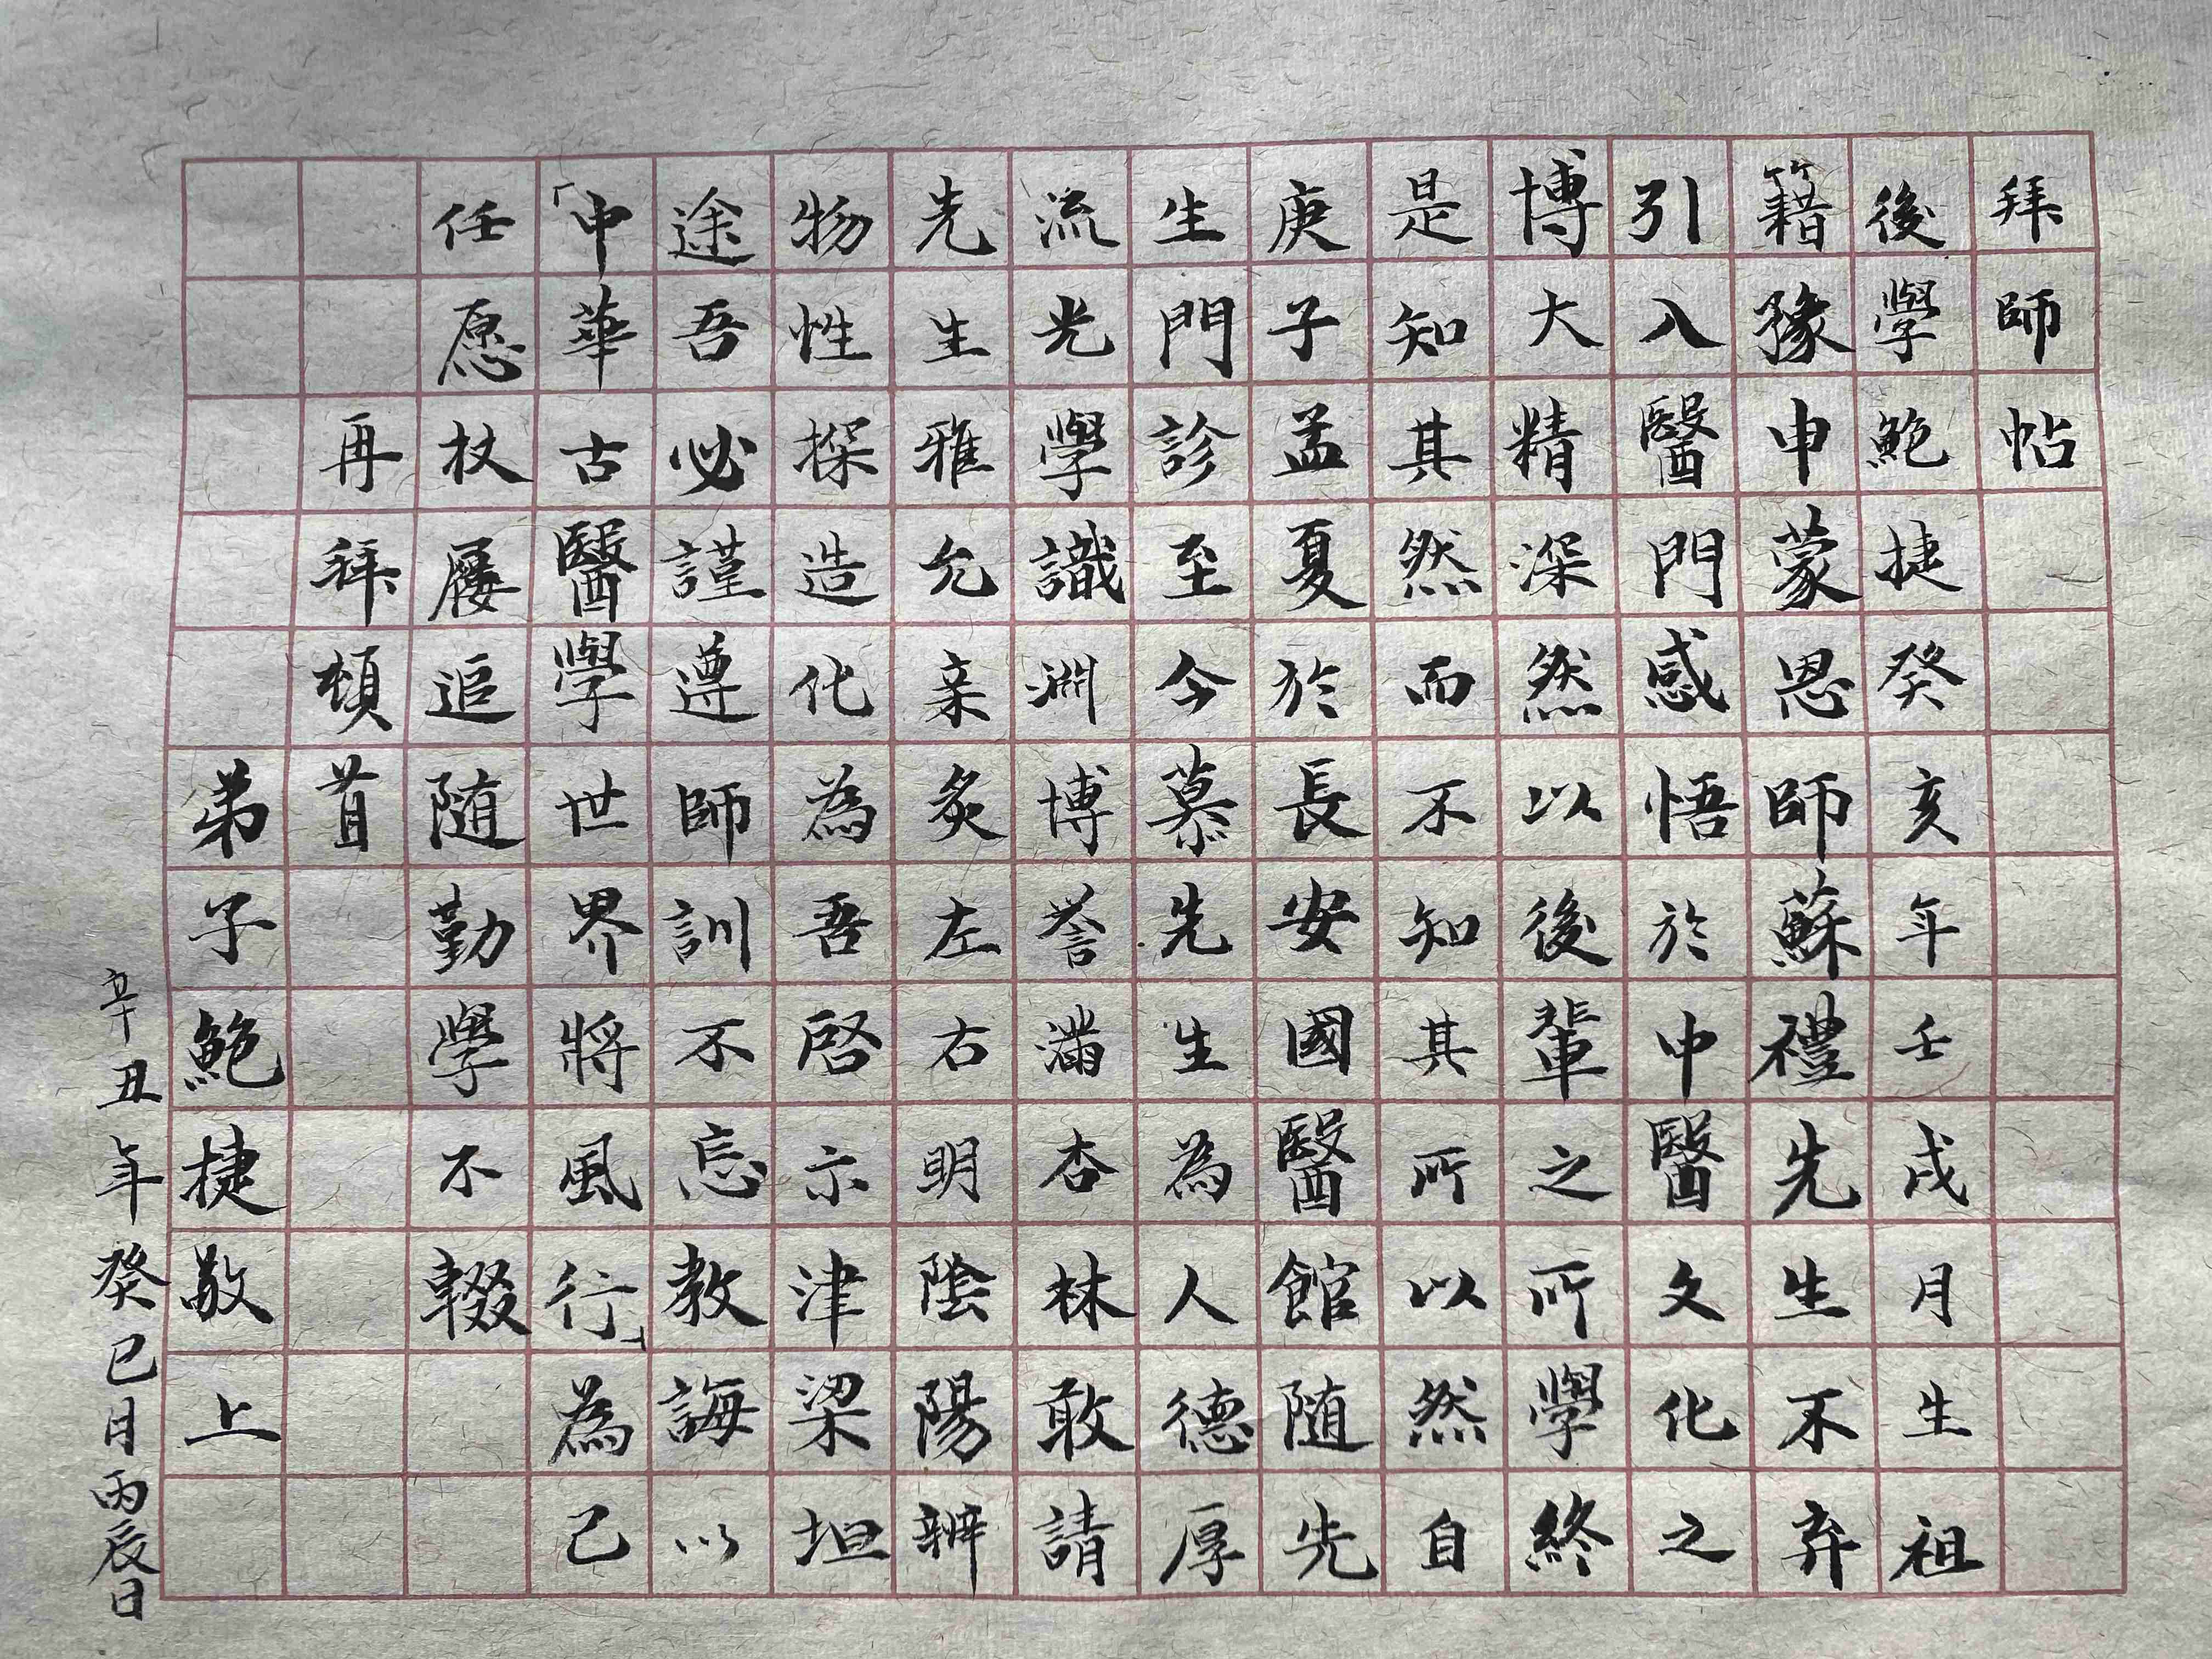 拜師帖
後學鮑捷癸亥年壬戌月生祖
籍豫申蒙恩師蘇禮先生不弃
引入醫門感悟於中醫文化之
博大精深然以後輩之所學終
是知其然而不知其所以然自
庚子孟夏於長安國醫館随先
生門診至今慕先生為人德厚
流光學識淵博誉滿杏林敢請
先生雅允亲炙左右明陰陽辨
物性探造化為吾啓示津梁坦
途吾必謹遵師訓不忘教誨以
「中華古醫學世界將風行」為己
任愿杖屨追随勤學不輟
再拜頓首
弟子鮑捷敬上
辛丑年癸巳月丙辰日